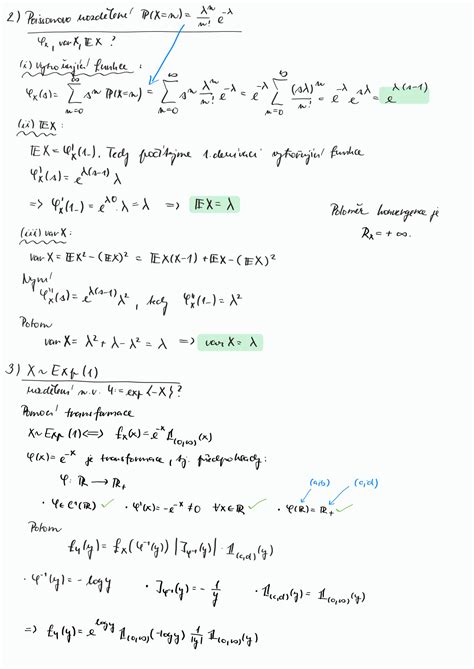 2) Poissonovo rozdělení P(X=n) = λⁿ/n! e^{-λ}
φₓ, var X, EX ?
(i) vytvořující funkce :
φₓ(s) = ∑_{n=0}^{∞} sⁿ P(X=n) = ∑_{n=0}^{∞} sⁿ λⁿ/n! e^{-λ} = e^{-λ} ∑_{n=0}^{∞} (sλ)ⁿ/n! = e^{-λ} e^{sλ} = e^{λ(s-1)}
(ii) EX :
EX = φ'ₓ(1-). Tedy počítejme 1. derivaci vytvořující funkce
φ'ₓ(s) = e^{λ(s-1)} λ
=> φ'ₓ(1-) = e^{λ0} · λ = λ => EX = λ
Poloměr konvergence je
Rₓ = +∞.
(iii) var X :
var X = EX² - (EX)² = EX(X-1) + EX - (EX)²
Nyní
φ''ₓ(s) = e^{λ(s-1)} λ², tedy φ''ₓ(1-) = λ²
Potom
var X = λ² + λ - λ² = λ => var X = λ
3) X ~ Exp(1)
rozdělení n.v. Y := exp{-X} ?
Pomocí transformace
X ~ Exp(1) <=> fₓ(x) = e^{-x} 1_{(0,∞)}(x)
φ(x) = e^{-x} je transformace, tj. předpoklady:
φ: R → R₊
(a,b) (c,d)
· φ ∈ C¹(R) ✓ · φ'(x) = -e^{-x} ≠ 0 ∀x∈R ✓ · φ(R) = R₊ ✓
Potom
f_Y(y) = fₓ(φ⁻¹(y)) |J_{φ⁻¹}(y)| · 1_{(c,d)}(y)
· φ⁻¹(y) = -log y · J_{φ⁻¹}(y) = - 1/y · 1_{(c,d)}(y) = 1_{(0,∞)}(y)
=> f_Y(y) = e^{log y} 1_{(0,∞)}(-log y) 1/|y| 1_{(0,∞)}(y)